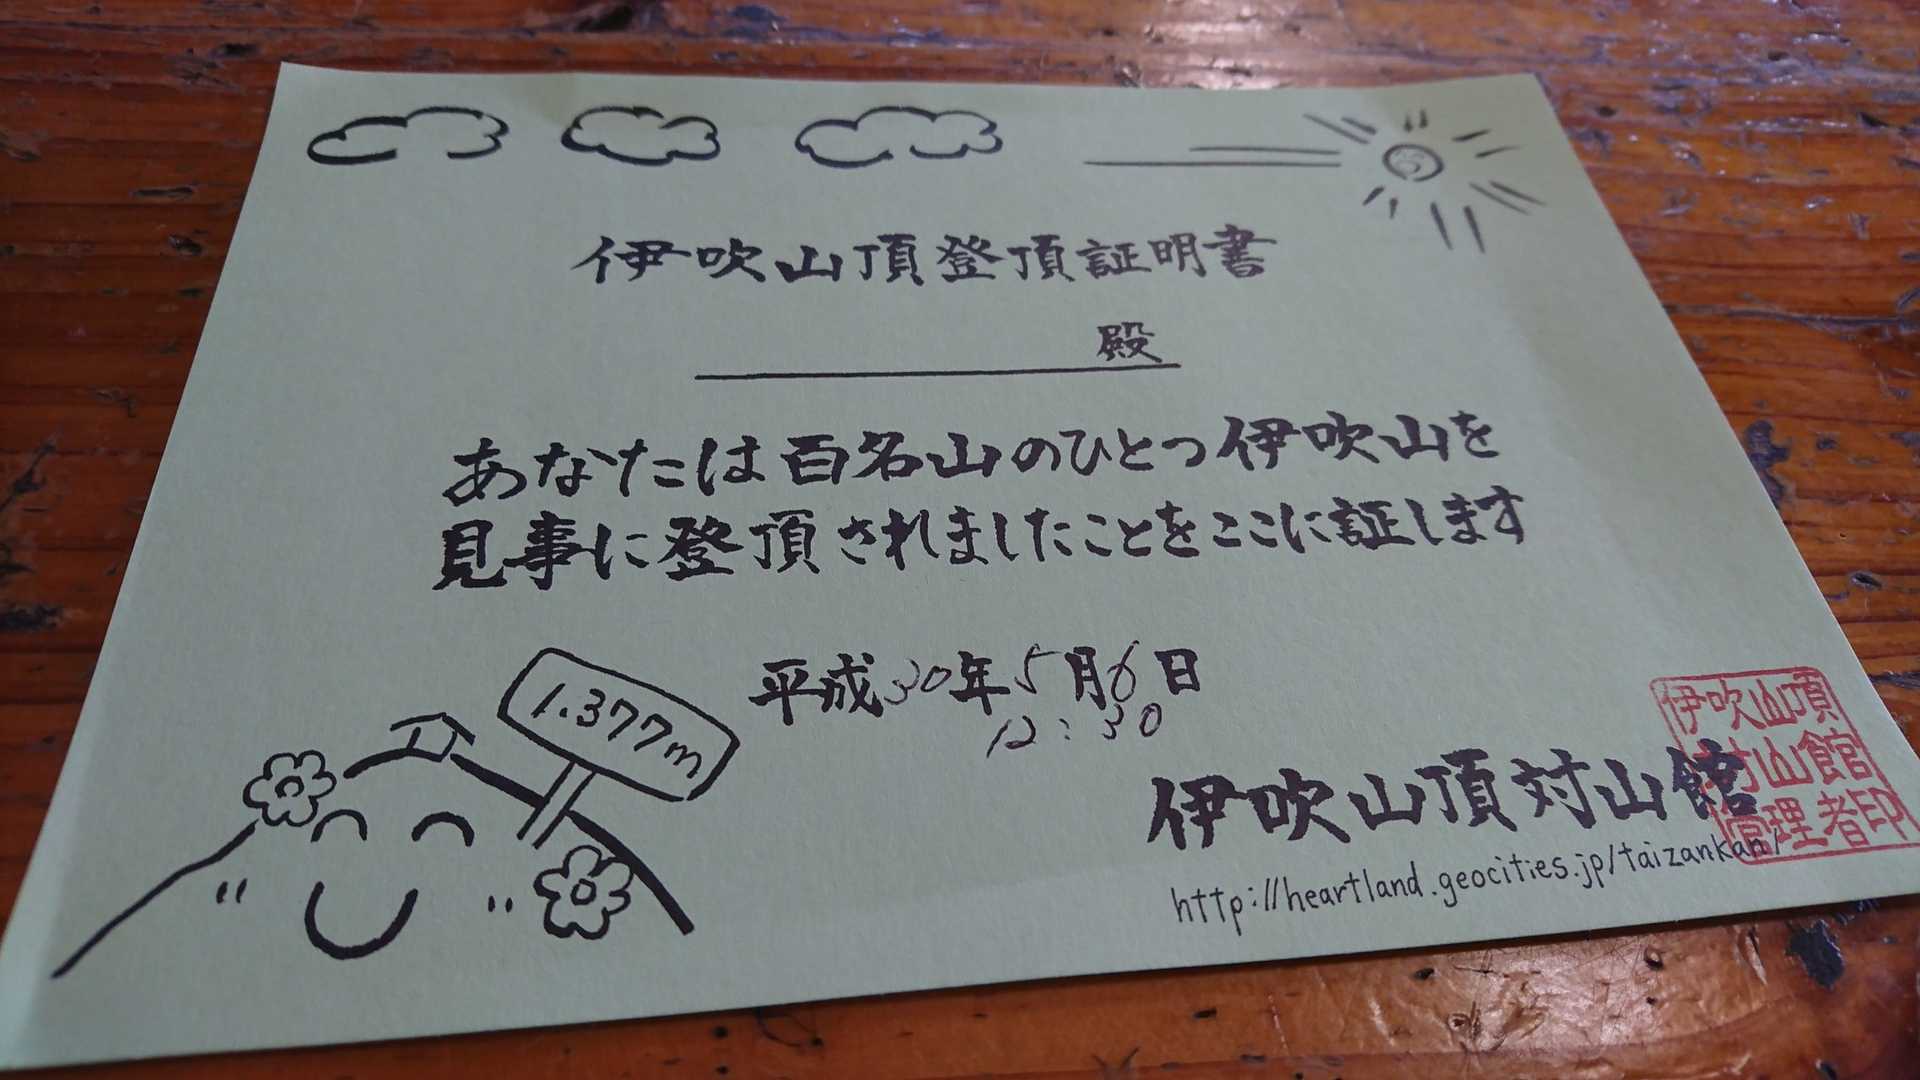 伊吹山頂登頂証明書
殿
あなたは百名山のひとつ伊吹山を
見事に登頂されましたことをここに証します
1.377m
平成30年5月6日
12:30
伊吹山頂対山館
http://heartland.geocities.jp/taizankan/
伊吹山頂
対山館
管理者印